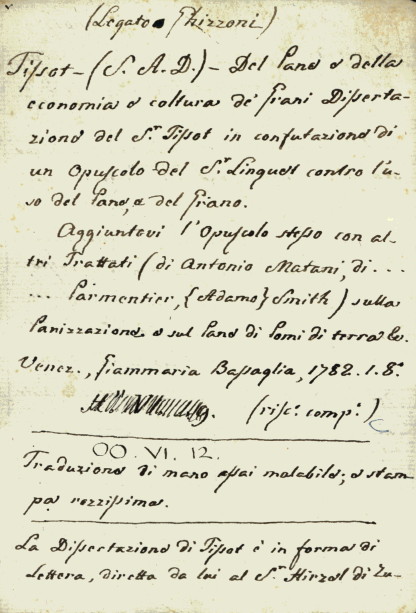 (Legato Ghizzoni)
Tissot - (S. A. D.) - Del Pane e della
economia e coltura de' Grani Disserta-
zione del S.r Tissot in confutazione di
un Opuscolo del S.r Linguet contro l'u-
so del Pane, e del Grano.
Aggiuntovi l'Opuscolo stesso con al-
tri Trattati (di Antonio Matani, di . . .
. . . Parmentier, {Adamo} Smith) sulla
Panizzazione e sul Pane di Pomi di terra &c.
Venez., Giammaria Bassaglia, 1782. 1. 8.°
(risc.o comp.o)
OO. VI. 12.
Traduzione di mano assai malabile; e stam-
pa rozzissima.
La Dissertazione di Tissot è in forma di
Lettera, diretta da lui al S.r Hirzel di Zu-